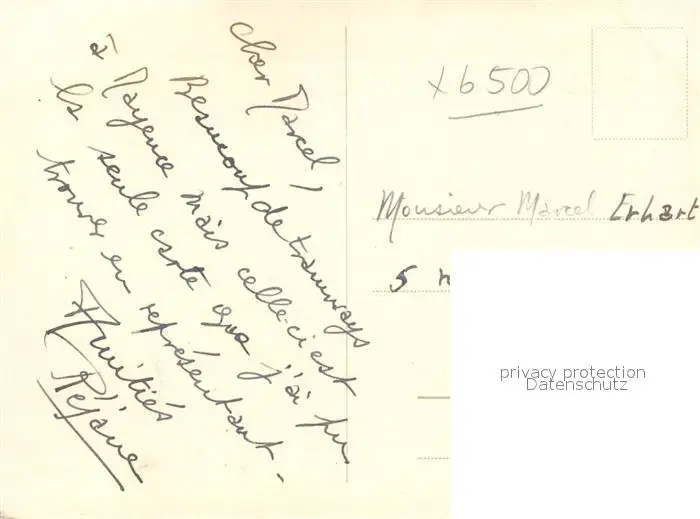 Cher Marcel,
Beaucoup de tramways
à Mayence mais celle-ci est
la seule carte que j'ai pu
trouver en représentant.
Amitiés
Réjane
x6500
Monsieur Marcel Erhart
5
privacy protection
Datenschutz